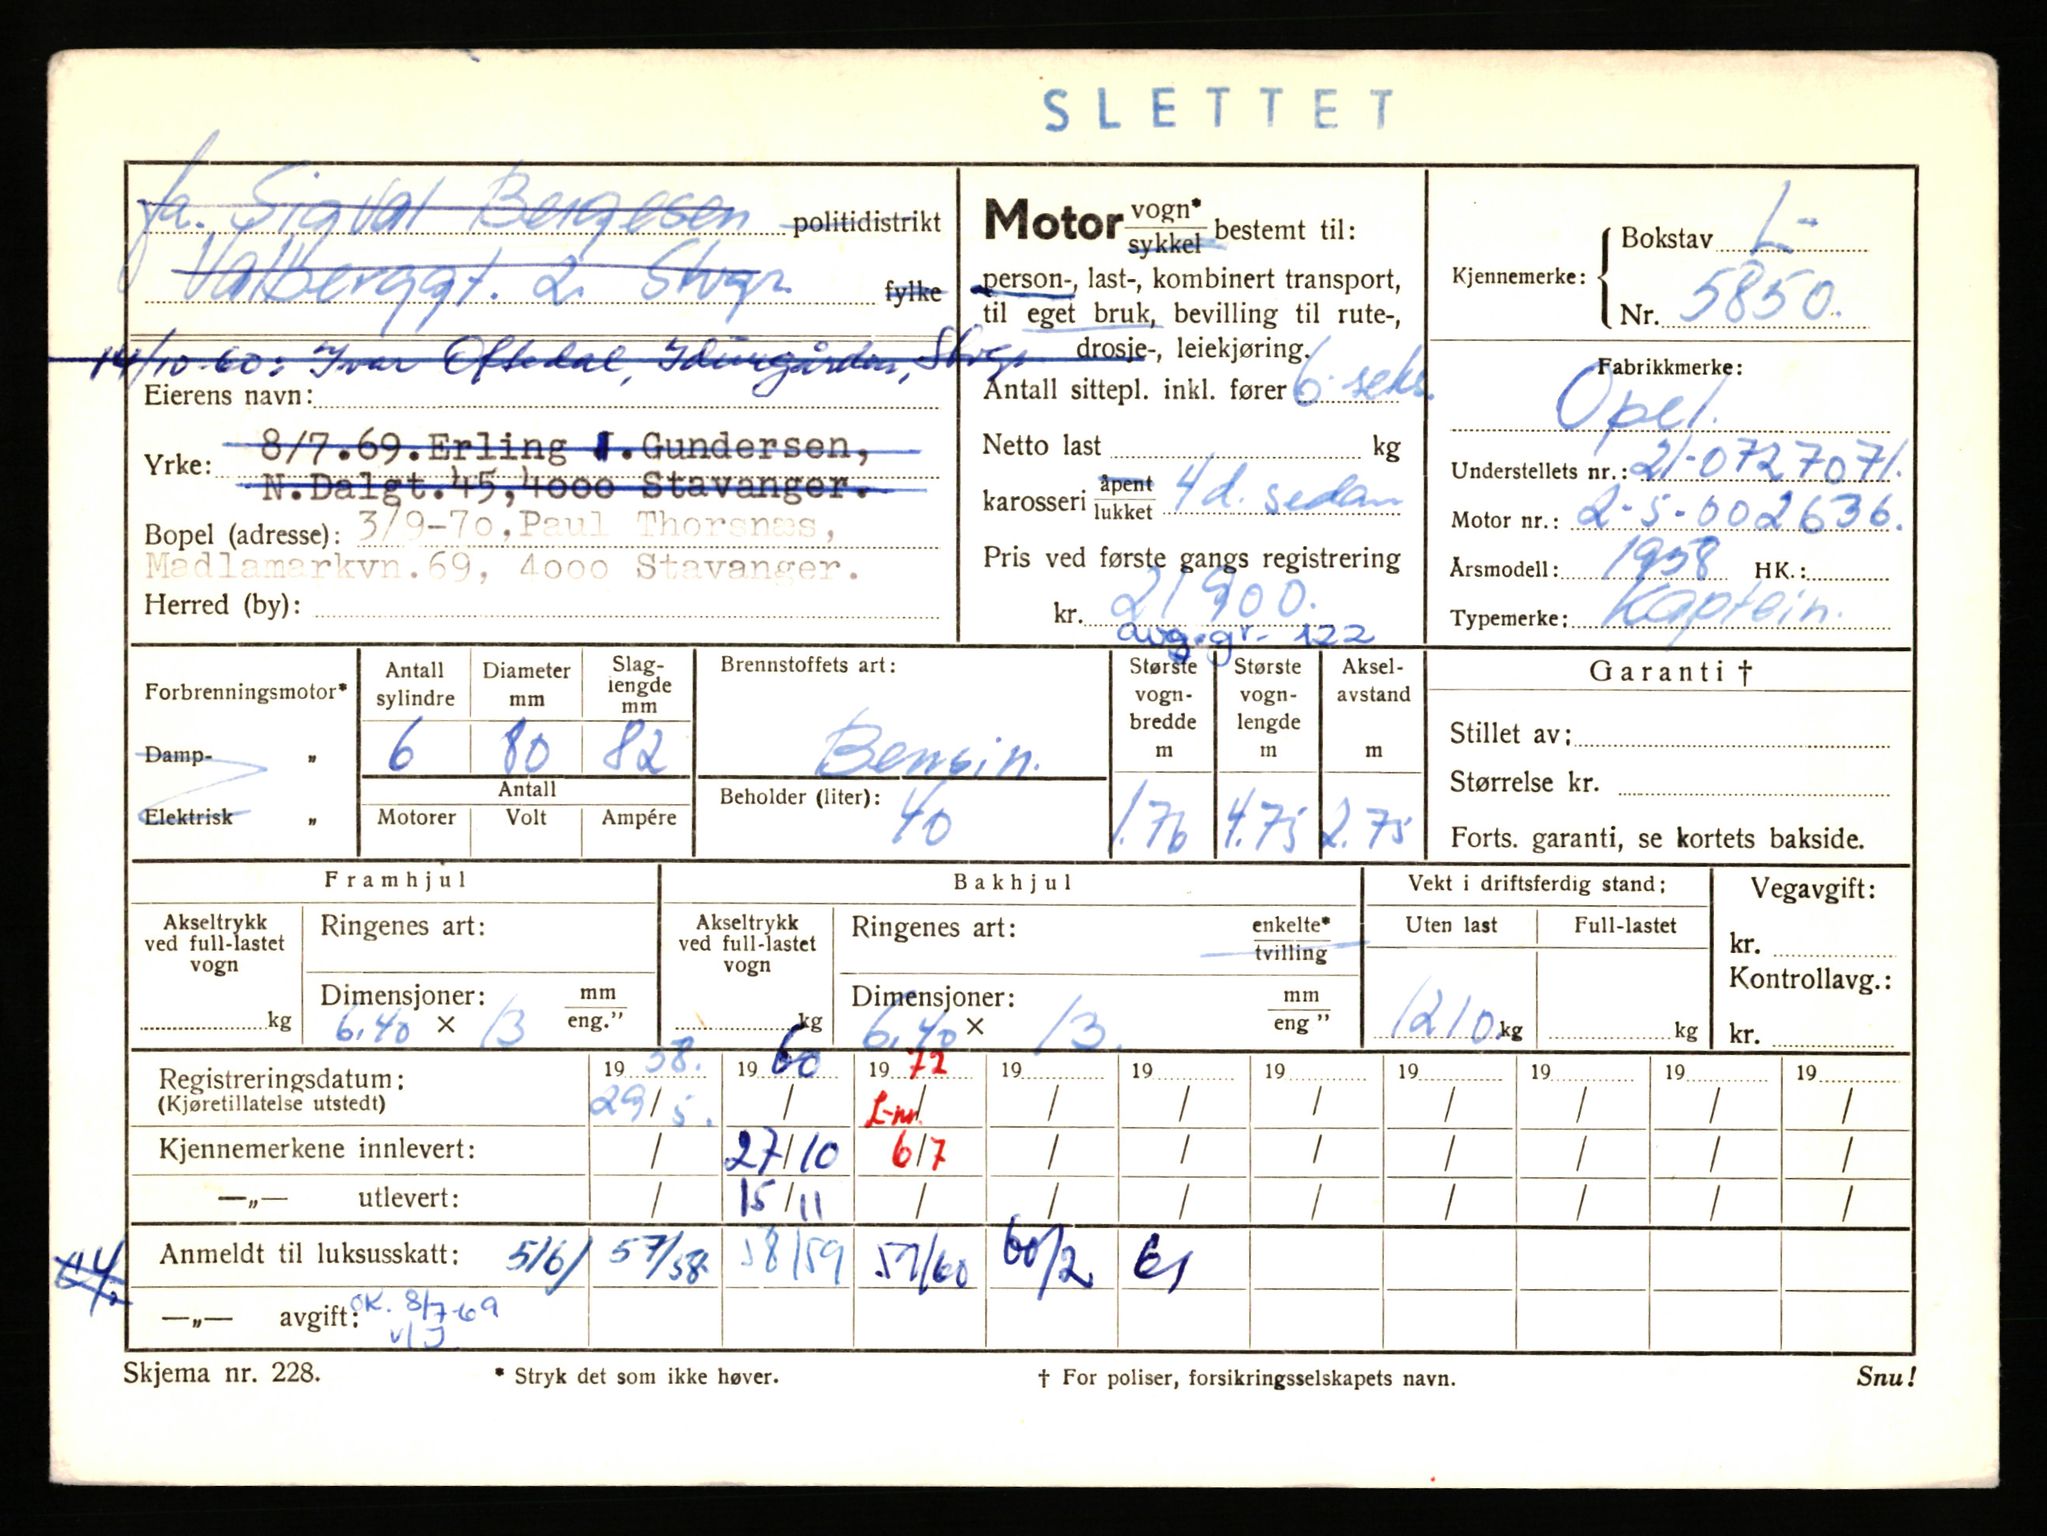 SLETTET
fa. Sigval Bergesen politidistrikt
Valberggt. 2. Stvgr. fylke
14/10-60: Ivar Oftedal, Idungården, Stvgr
Eierens navn:
8/7.69. Erling I. Gundersen,
Yrke:
N.Dalgt.45, 4000 Stavanger.
Bopel (adresse): 3/9-70, Paul Thorsnæs,
Madlamarkvn.69, 4000 Stavanger.
Herred (by):
Motor vogn* sykkel bestemt til:
person-, last-, kombinert transport,
til eget bruk, bevilling til rute-,
drosje-, leiekjøring.
Antall sittepl. inkl. fører 6 seks.
Netto last kg
karosseri åpent lukket 4 d. sedan
Pris ved første gangs registrering
kr. 21900.
avg.gr. 122
Kjennemerke: Bokstav L-
Nr. 5850.
Fabrikkmerke:
Opel.
Understellets nr.: 21-0727071.
Motor nr.: 2-5-002636.
Årsmodell: 1958 HK.:
Typemerke: Kaptein.
Forbrenningsmotor*
Damp- „
Elektrisk „
Antall sylindre Diameter mm Slaglengde mm
6 80 82
Antall
Motorer Volt Ampére
Brennstoffets art:
Bensin.
Beholder (liter):
40
Største vogn-bredde m Største vogn-lengde m Aksel-avstand m
1.76 4.75 2.75
Garanti †
Stillet av:
Størrelse kr.
Forts. garanti, se kortets bakside.
Framhjul
Akseltrykk ved full-lastet vogn
kg
Ringenes art:
Dimensjoner: mm
6.40 × 13 eng."
Bakhjul
Akseltrykk ved full-lastet vogn
kg
Ringenes art: enkelte* tvilling
Dimensjoner: mm
6.40 × 13. eng "
Vekt i driftsferdig stand:
Uten last Full-lastet
1210 kg kg
Vegavgift:
kr.
Kontrollavg.:
kr.
Registreringsdatum: 19 58. 19 60 19 72 19 19 19 19 19 19 19
(Kjøretillatelse utstedt) 29/5. / L-nr. / / / / / / / /
Kjennemerkene innlevert: / 27/10 6/7 / / / / / / /
—„— utlevert: / 15/11 / / / / / / / /
Anmeldt til luksusskatt: 5/6/ 57/58. 58/59 59/60 60/2 61
—„— avgift: OK. 8/7-69
Skjema nr. 228. * Stryk det som ikke høver. † For poliser, forsikringsselskapets navn. Snu!